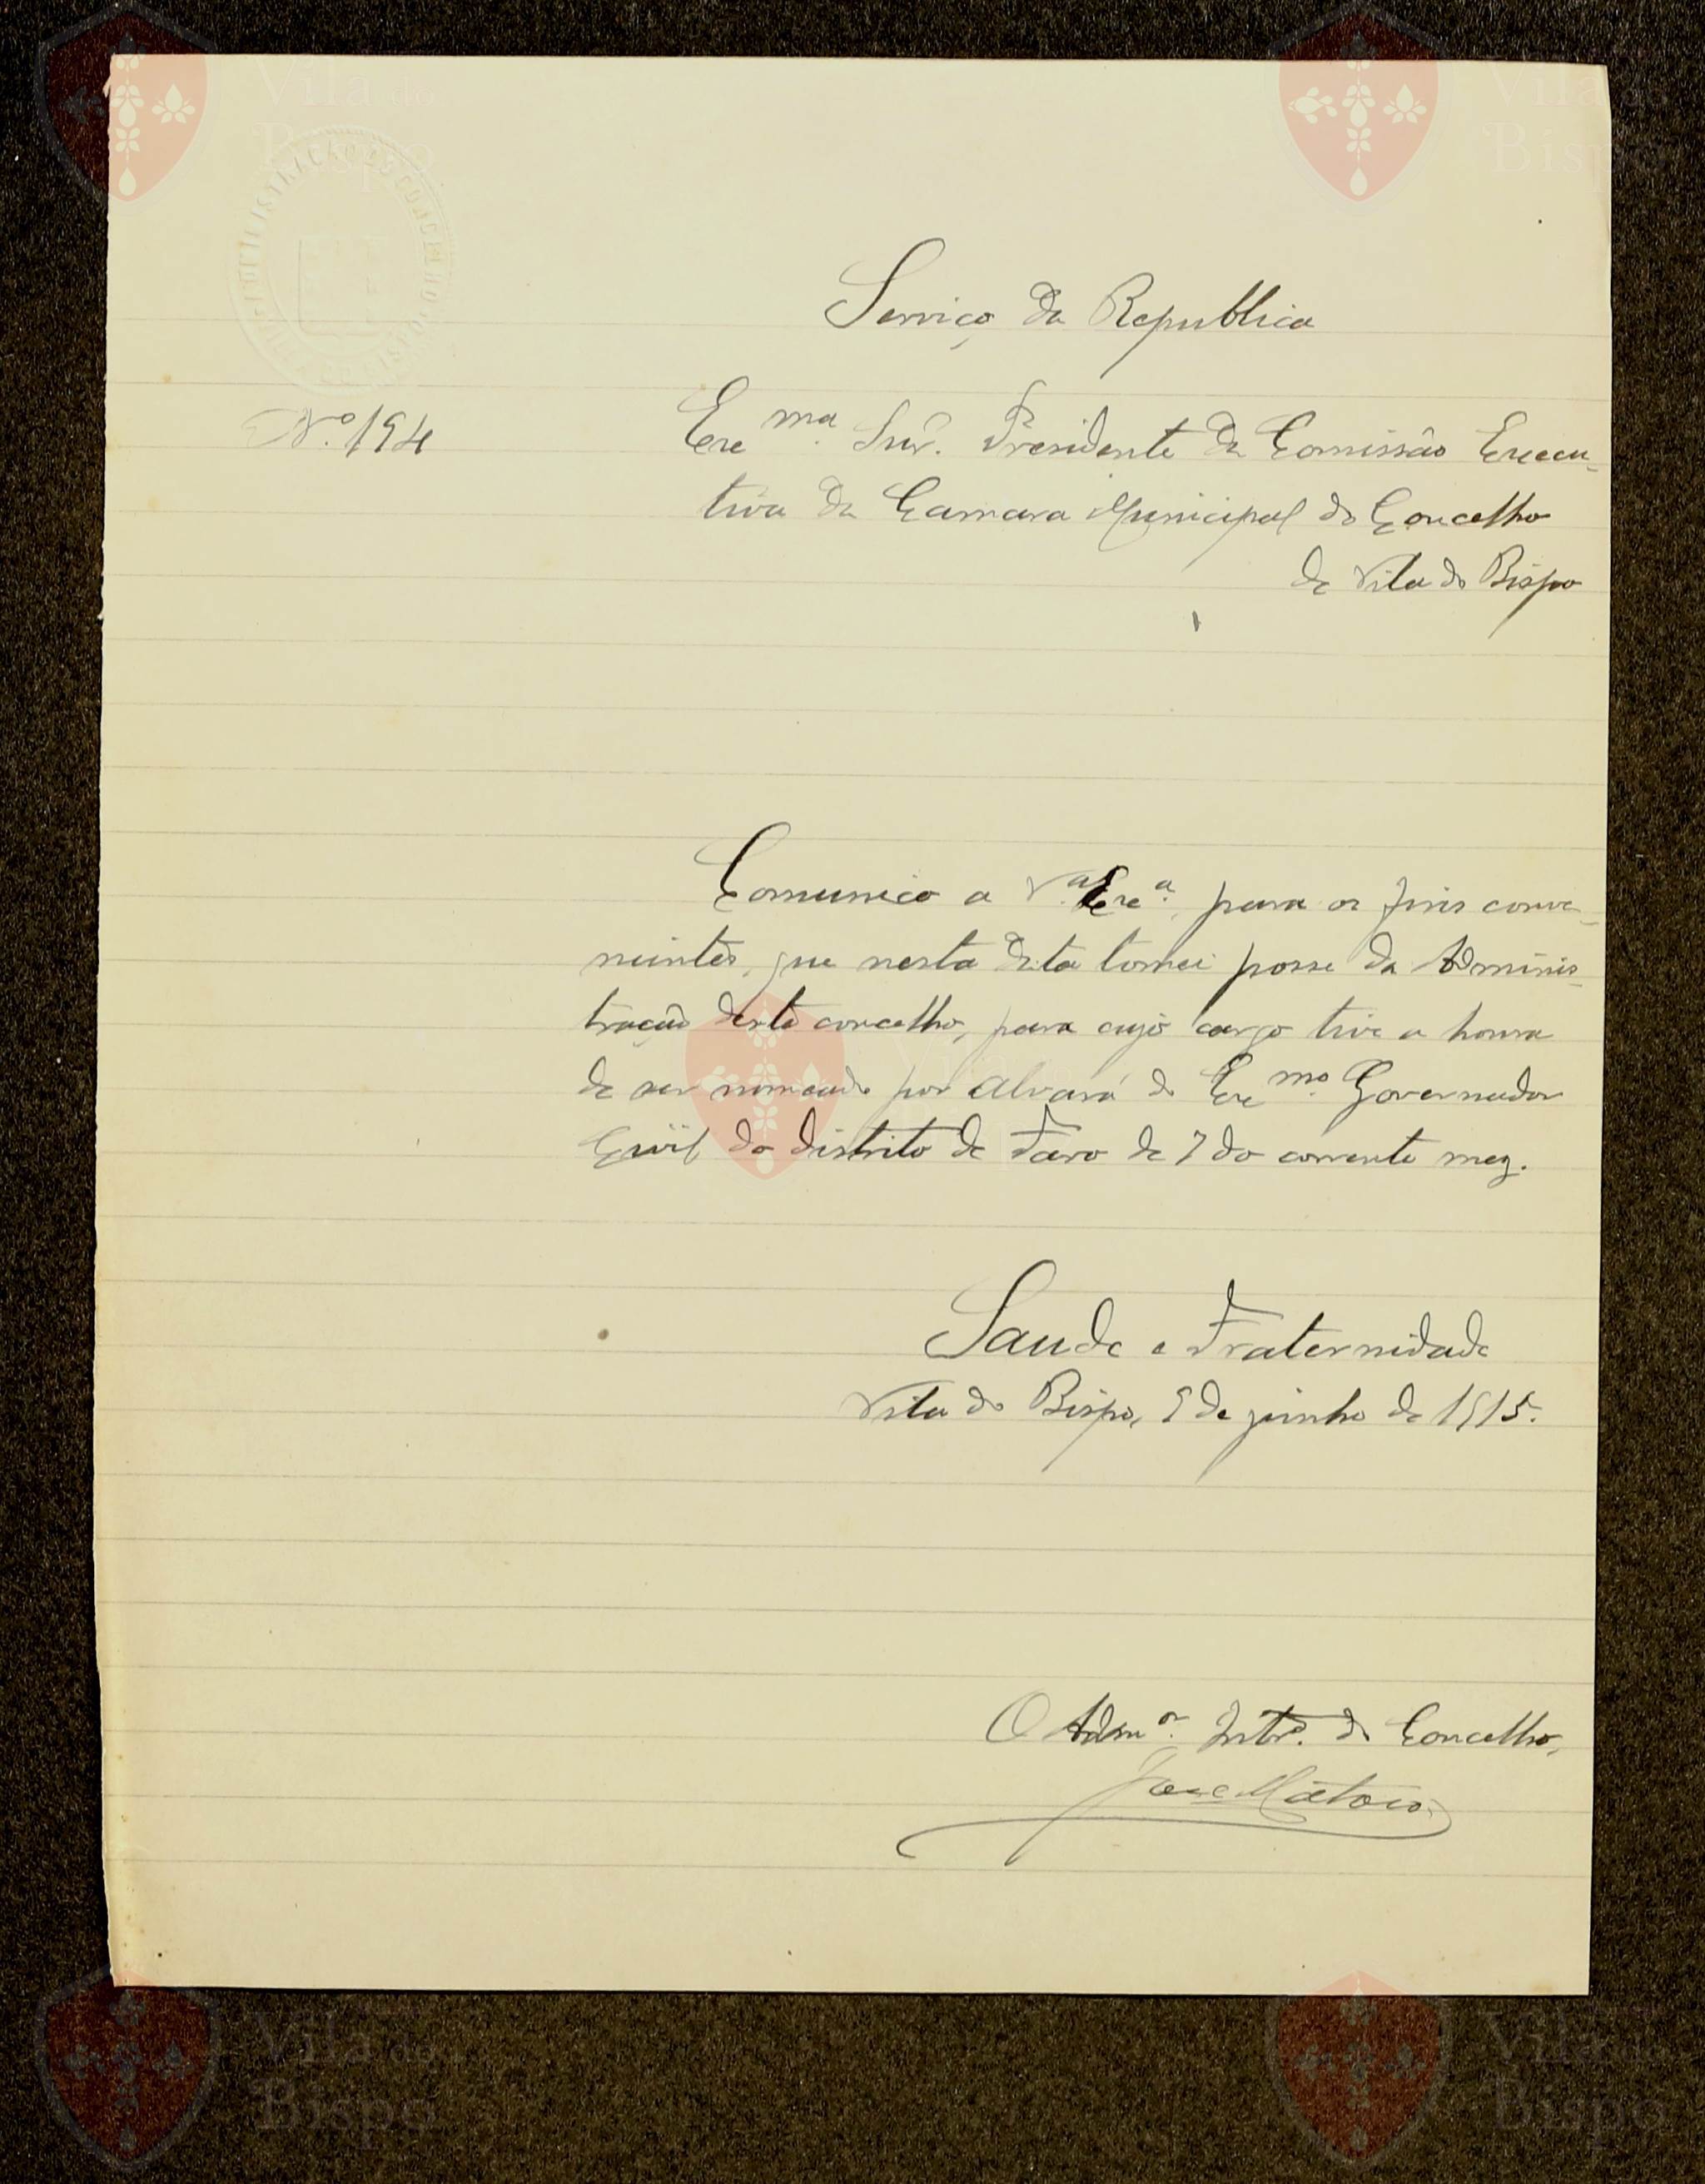 Vila do Bispo
Vila do Bispo
Serviço da Republica
Nº 194
Exc.ma Snr. Presidente da Comissão Execu-
tiva da Camara Municipal do Concelho
de Vila do Bispo
Comunico a V.ª Exc.ª, para os fins conve-
nientes, que nesta data tomei posse da Adminis-
tração deste concelho, para cujo cargo tive a honra
de ser nomeado por alvará do Exc.mo Governador
Civil do distrito de Faro de 7 do corrente mez.
Saude e Fraternidade
Vila do Bispo, 9 de junho de 1915.
O Adm.or Int.º do Concelho,
José
Vila do Bispo
Vila do Bispo